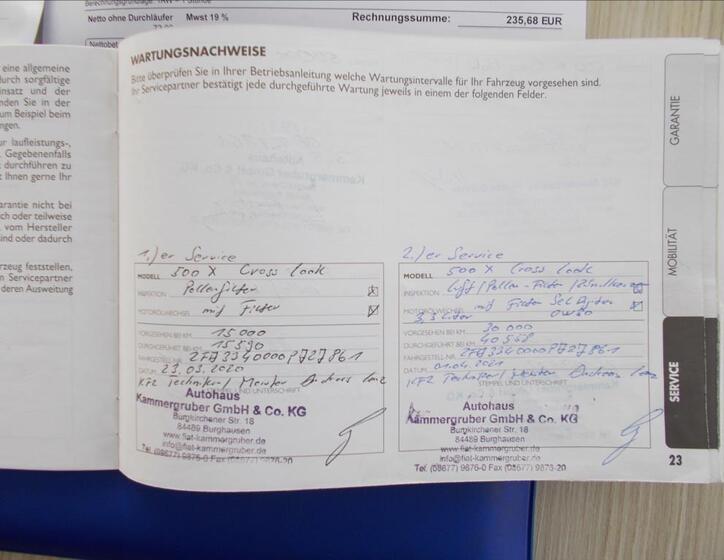 Netto ohne Durchläufer Mwst 19 % Rechnungssumme: 235,68 EUR
eine allgemeine
durch sorgfältige
insatz und der
nden Sie in der
um Beispiel beim
ngen.
ur laufleistungs-,
Gegebenenfalls
durchführen zu
t Ihnen gerne Ihr
arantie nicht bei
ch oder teilweise
vom Hersteller
ind oder dadurch
rzeug feststellen,
n Servicepartner
deren Ausweitung
WARTUNGSNACHWEISE
Bitte überprüfen Sie in Ihrer Betriebsanleitung welche Wartungsintervalle für Ihr Fahrzeug vorgesehen sind.
Ihr Servicepartner bestätigt jede durchgeführte Wartung jeweils in einem der folgenden Felder.
1.)er Service
MODELL 500 X Cross Look
INSPEKTION Pollenfilter
MOTORÖLWECHSEL mit Filter
VORGESEHEN BEI KM 15 000
DURCHGEFÜHRT BEI KM 15 590
FAHRGESTELL-NR.
DATUM 23.03.2020
KFZ Techniker/ Meister
STEMPEL UND UNTERSCHRIFT
Autohaus
Kammergruber GmbH & Co. KG
Burgkirchener Str. 18
84489 Burghausen
www.fiat-kammergruber.de
info@fiat-kammergruber.de
Tel. (08677) 9876-0 Fax (08677) 9876-20
2.)er Service
MODELL 500 X Cross Look
INSPEKTION Luft/Pollen-Filter
MOTORÖLWECHSEL mit Filter
0W30
VORGESEHEN BEI KM 30 000
DURCHGEFÜHRT BEI KM
FAHRGESTELL-NR.
DATUM 01.04.2021
KFZ Techniker/
STEMPEL UND UNTERSCHRIFT
Autohaus
Kammergruber GmbH & Co. KG
Burgkirchener Str. 18
84489 Burghausen
www.fiat-kammergruber.de
info@fiat-kammergruber.de
Tel. (08677) 9876-0 Fax (08677) 9876-20
GARANTIE
MOBILITÄT
SERVICE
23